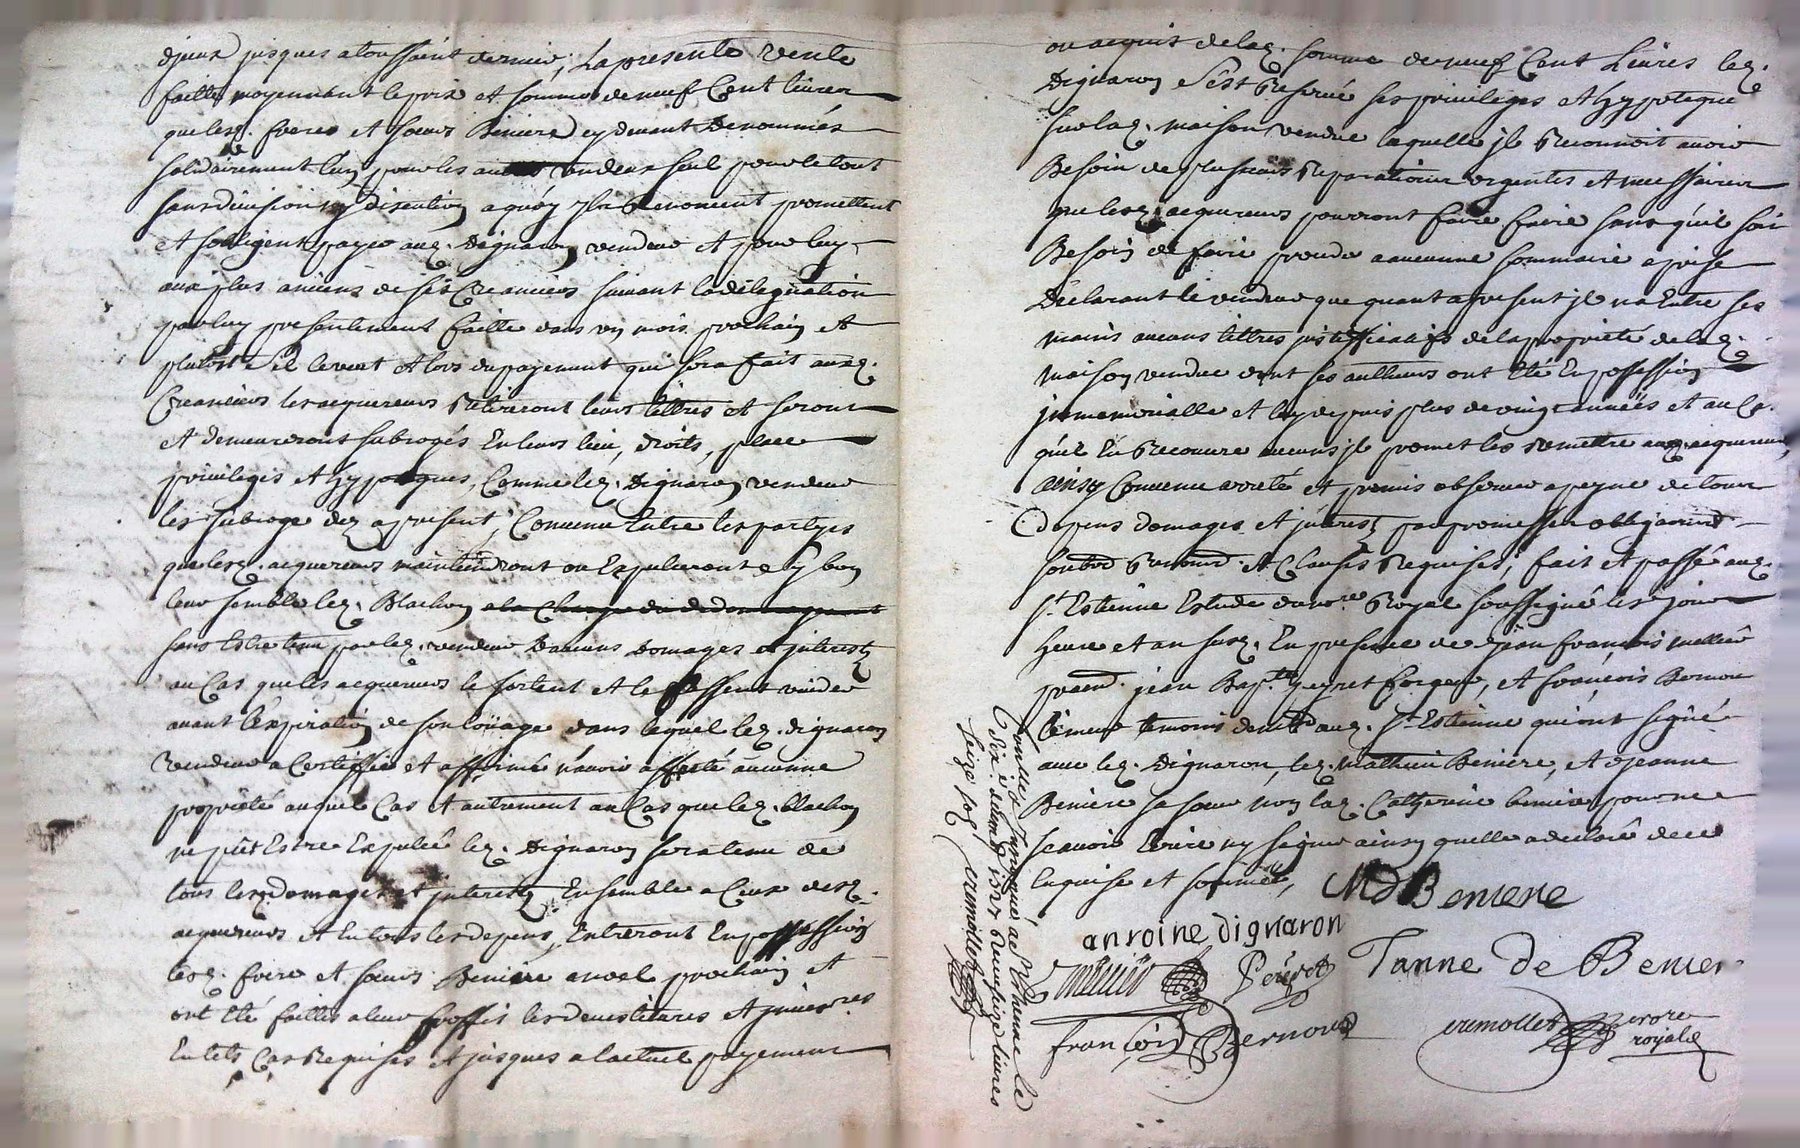 d'jceux jusques a toussaint dernier, La presente vente
faitte moyennant le prix et somme de neuf Cent livres
que lesq. freres et soeurs Beniere cydevant Denommés
solidairement l'un pour les autres un deux seul pour le tout
sans division ny discution a quoy jls renoncent promettent
et sobligent payer auq. Dignaron vendeur et pour luy
aux plus anciens de ses Creanciers suivant la délegation
par luy presentement faitte dans un mois prochain et
plutost s'il levent et lors du payement qui sera fait auxq.
Creanciers les acquereurs retireront leurs tittres et seront
et demeureront subrogés en leurs lieu, droits, place
privileges et hypoteques, Comme leq. Dignaron vendeur
les subroge dez apresent; Convenu Entre les partyes
que lesq. acquereurs maintiendront ou Expulseront sy bon
leur semble leq. Blachon a la Charge du dedommagement
sans Estre tenu par leq. vendeur Daucuns Domages et jnterests
au Cas que les acquereurs le sortent et le fassent vuider
avant l'expiration de son loüage dans lequel leq. dignaron
vendeur a Certiffié et affirmé n'avoir affecté aucunne
proprieté auquel Cas et autrement au Cas que leq. blachon
ne pût Estre Expulsé leq. Dignaron sera tenu de
tous lesq domages et jnterests Ensemble a Ceux desq.
acquereurs et en tous les depens, Entreront En possession
lesq. frere et soeurs Beniere a noel prochain et
ont eté faittes a leur proffit les devestitures et jnvesres
En tels Cas Requises et jusques a l'actuel payement
ou acquit de laq. somme de neuf Cent Livres leq.
Dignaron s'est Reservé ses privileges et hypoteque
sur laq. maison vendue laquelle jl Reconnoit avoir
Besoin de plusieurs Reparations urgentes et necessaires
que lesq. acquereurs pourront faire faire sans quil soit
Besoin de faire prendre aucunne sommaire aprise
Declarant le vendeur que quant apresent jl na Entre ses
mains aucuns tittres justifficatifs de la proprieté de laq.
maison vendue dont ses autheurs ont eté En possession
jmmemorialle et luy depuis plus de vingt années et au Cas
qu'il En Recouvre aucuns jl promet les remettre auxq acquereurs
ainsy Convenu arreté et promis observer a peyne de tous
depens domages et jnterests par promesses obligaōns
soubōns Renonōns et Clauses Requises; fait et passé auq.
St. Estienne Estude du nore Royal soussigné les jour
heure et an susq. En presence de Sr jean françois mellier
pratn. jean Bapte. peyret forgeur, et françois Bernou
temoins demt auq. St. Estienne qui ont signé
avec leq. Dignaron, leq. mathieu Beniere, et Jeanne
Beniere sa soeur non laq. Catherine beniere pour ne
scavoir Ecrire ny signer ainsy quelle a declaré de ce
Enquise et sommée,
MD Beniere
antoine dignaron
mellier
Peyret
Janne De Benier
françois Bernoud
crumollet nore
royal
Controllé & Insinué a St. Ethienne le
seize sols crumollet